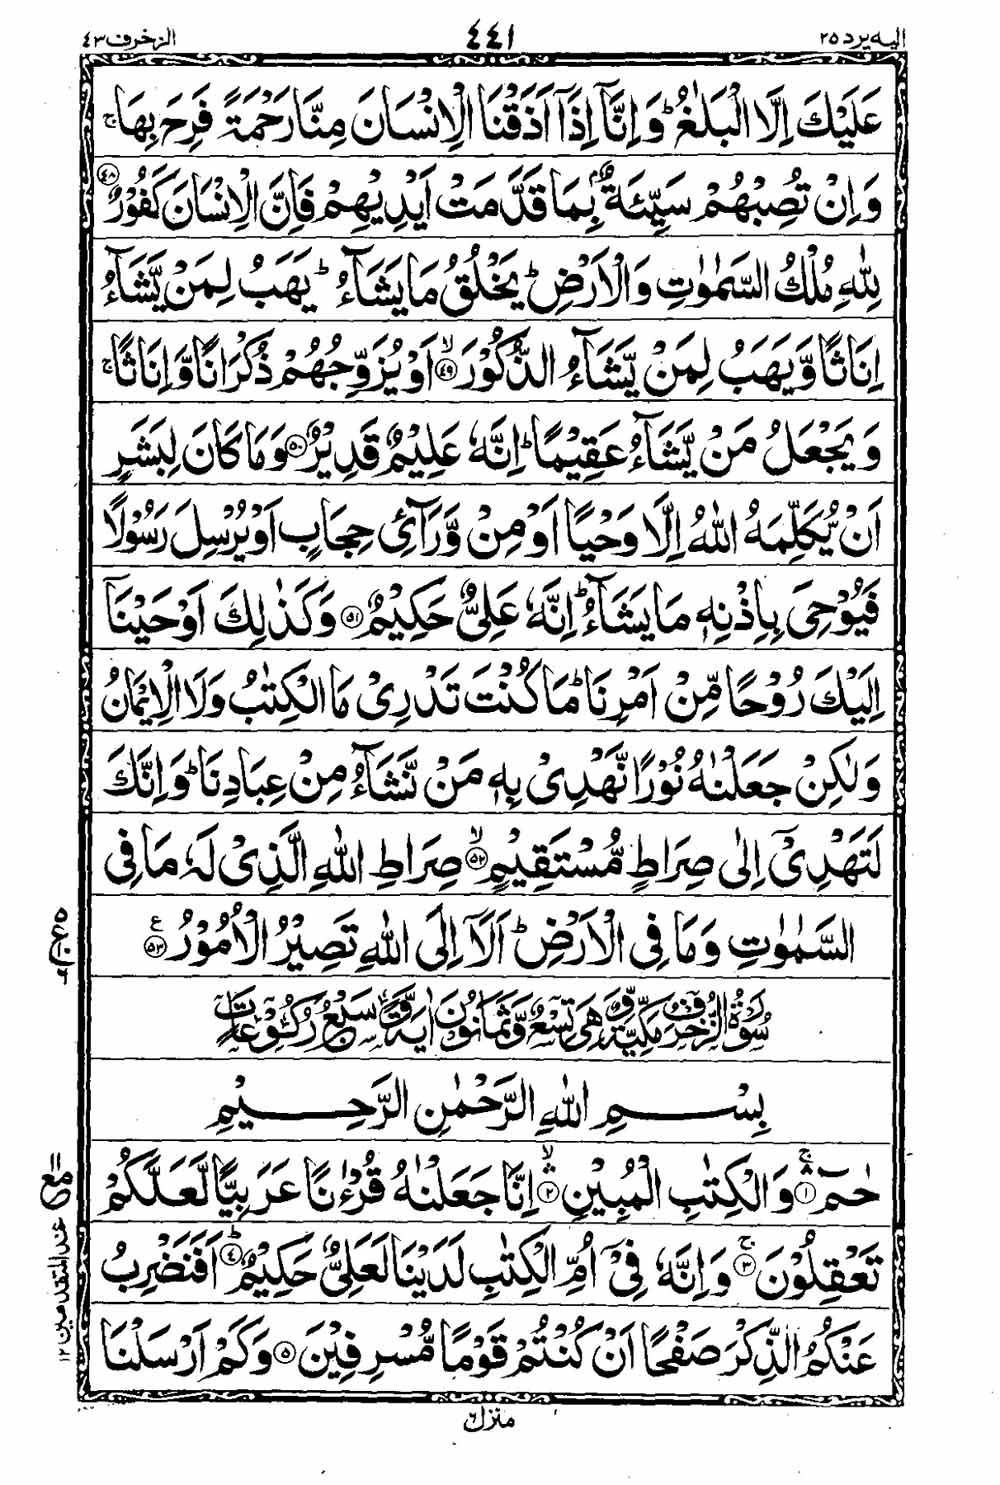 الیه یرد ۲۵
۴۴۱
الزخرف ۴۳
عَلَیْكَ اِلَّا الْبَلٰغُ ؕ وَ اِنَّاۤ اِذَاۤ اَذَقْنَا الْاِنْسَانَ مِنَّا رَحْمَةً فَرِحَ بِهَا ۚ
وَ اِنْ تُصِبْهُمْ سَیِّئَةٌۢ بِمَا قَدَّمَتْ اَیْدِیْهِمْ فَاِنَّ الْاِنْسَانَ كَفُوْرٌ ﴿۴۸﴾
لِلّٰهِ مُلْكُ السَّمٰوٰتِ وَ الْاَرْضِ ؕ یَخْلُقُ مَا یَشَآءُ ؕ یَهَبُ لِمَنْ یَّشَآءُ
اِنَاثًا وَّ یَهَبُ لِمَنْ یَّشَآءُ الذُّكُوْرَ ﴿ۙ۴۹﴾ اَوْ یُزَوِّجُهُمْ ذُكْرَانًا وَّ اِنَاثًا ۚ
وَ یَجْعَلُ مَنْ یَّشَآءُ عَقِیْمًا ؕ اِنَّهٗ عَلِیْمٌ قَدِیْرٌ ﴿۵۰﴾ وَ مَا كَانَ لِبَشَرٍ
اَنْ یُّكَلِّمَهُ اللّٰهُ اِلَّا وَحْیًا اَوْ مِنْ وَّرَآئِ حِجَابٍ اَوْ یُرْسِلَ رَسُوْلًا
فَیُوْحِیَ بِاِذْنِهٖ مَا یَشَآءُ ؕ اِنَّهٗ عَلِیٌّ حَكِیْمٌ ﴿۵۱﴾ وَ كَذٰلِكَ اَوْحَیْنَاۤ
اِلَیْكَ رُوْحًا مِّنْ اَمْرِنَا ؕ مَا كُنْتَ تَدْرِیْ مَا الْكِتٰبُ وَ لَا الْاِیْمَانُ
وَ لٰكِنْ جَعَلْنٰهُ نُوْرًا نَّهْدِیْ بِهٖ مَنْ نَّشَآءُ مِنْ عِبَادِنَا ؕ وَ اِنَّكَ
لَتَهْدِیْۤ اِلٰی صِرَاطٍ مُّسْتَقِیْمٍ ﴿ۙ۵۲﴾ صِرَاطِ اللّٰهِ الَّذِیْ لَهٗ مَا فِی
السَّمٰوٰتِ وَ مَا فِی الْاَرْضِ ؕ اَلَاۤ اِلَی اللّٰهِ تَصِیْرُ الْاُمُوْرُ ﴿۵۳﴾ ع
سُوْرَةُ الزُّخْرُفِ مَكِّیَّةٌ وَّ هِیَ تِسْعٌ وَّ ثَمَانُوْنَ اٰیَةً وَّ سَبْعُ رُكُوْعَاتٍ
بِسْمِ اللّٰهِ الرَّحْمٰنِ الرَّحِیْمِ
حٰمٓ ﴿ۚۛ۱﴾ وَ الْكِتٰبِ الْمُبِیْنِ ﴿ۙۛ۲﴾ اِنَّا جَعَلْنٰهُ قُرْءٰنًا عَرَبِیًّا لَّعَلَّكُمْ
تَعْقِلُوْنَ ﴿ۚ۳﴾ وَ اِنَّهٗ فِیْۤ اُمِّ الْكِتٰبِ لَدَیْنَا لَعَلِیٌّ حَكِیْمٌ ﴿ؕ۴﴾ اَفَنَضْرِبُ
عَنْكُمُ الذِّكْرَ صَفْحًا اَنْ كُنْتُمْ قَوْمًا مُّسْرِفِیْنَ ﴿۵﴾ وَ كَمْ اَرْسَلْنَا
منزل ۶
مع
عند المتقدمین ۱۲